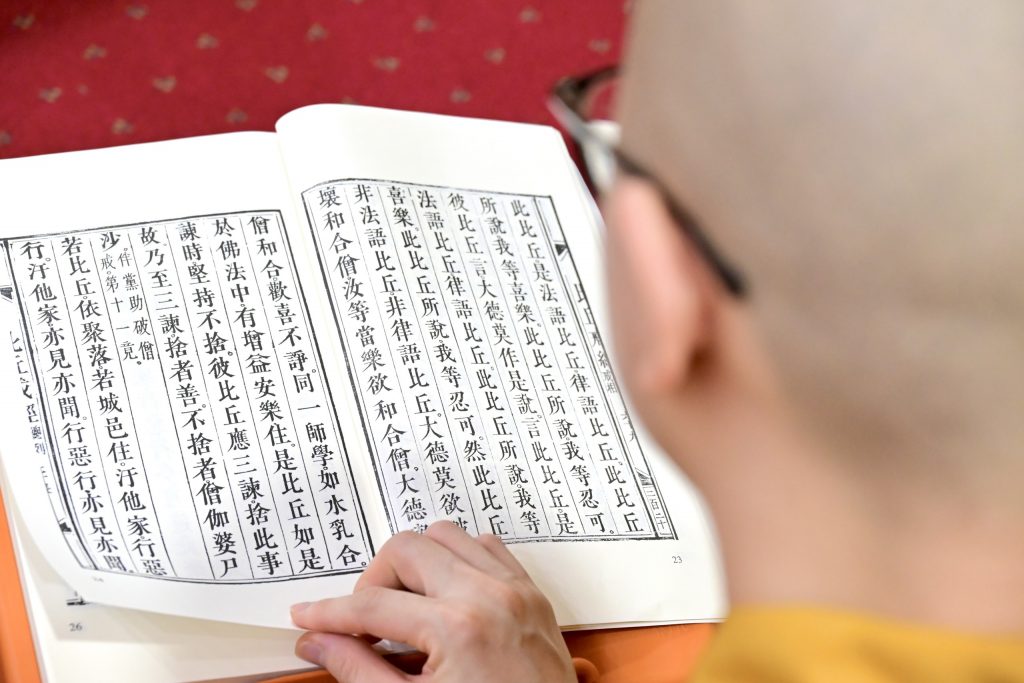 此比丘是法語比丘。律語比丘。此比丘
所說我等喜樂。此比丘所說我等忍可。
彼比丘言大德莫作是說。言此比丘是
法語比丘律語比丘。此比丘所說。我等
喜樂。此比丘所說。我等忍可。然此比丘
非法語比丘非律語比丘。大德莫欲破
壞和合僧汝等當樂欲和合僧。大德
二百二十
23
僧和合。歡喜不諍。同一師學如水乳合。
於佛法中。有增益安樂住。是比丘如是
諫時堅持不捨。彼比丘應三諫捨此事
故乃至三諫捨者善。不捨者僧伽婆尸
沙。伴黨助破僧
戒。第十一竟。
若比丘依聚落若城邑住。汙他家行惡
行。汙他家亦見亦聞。行惡行亦見亦聞
比丘戒經
26